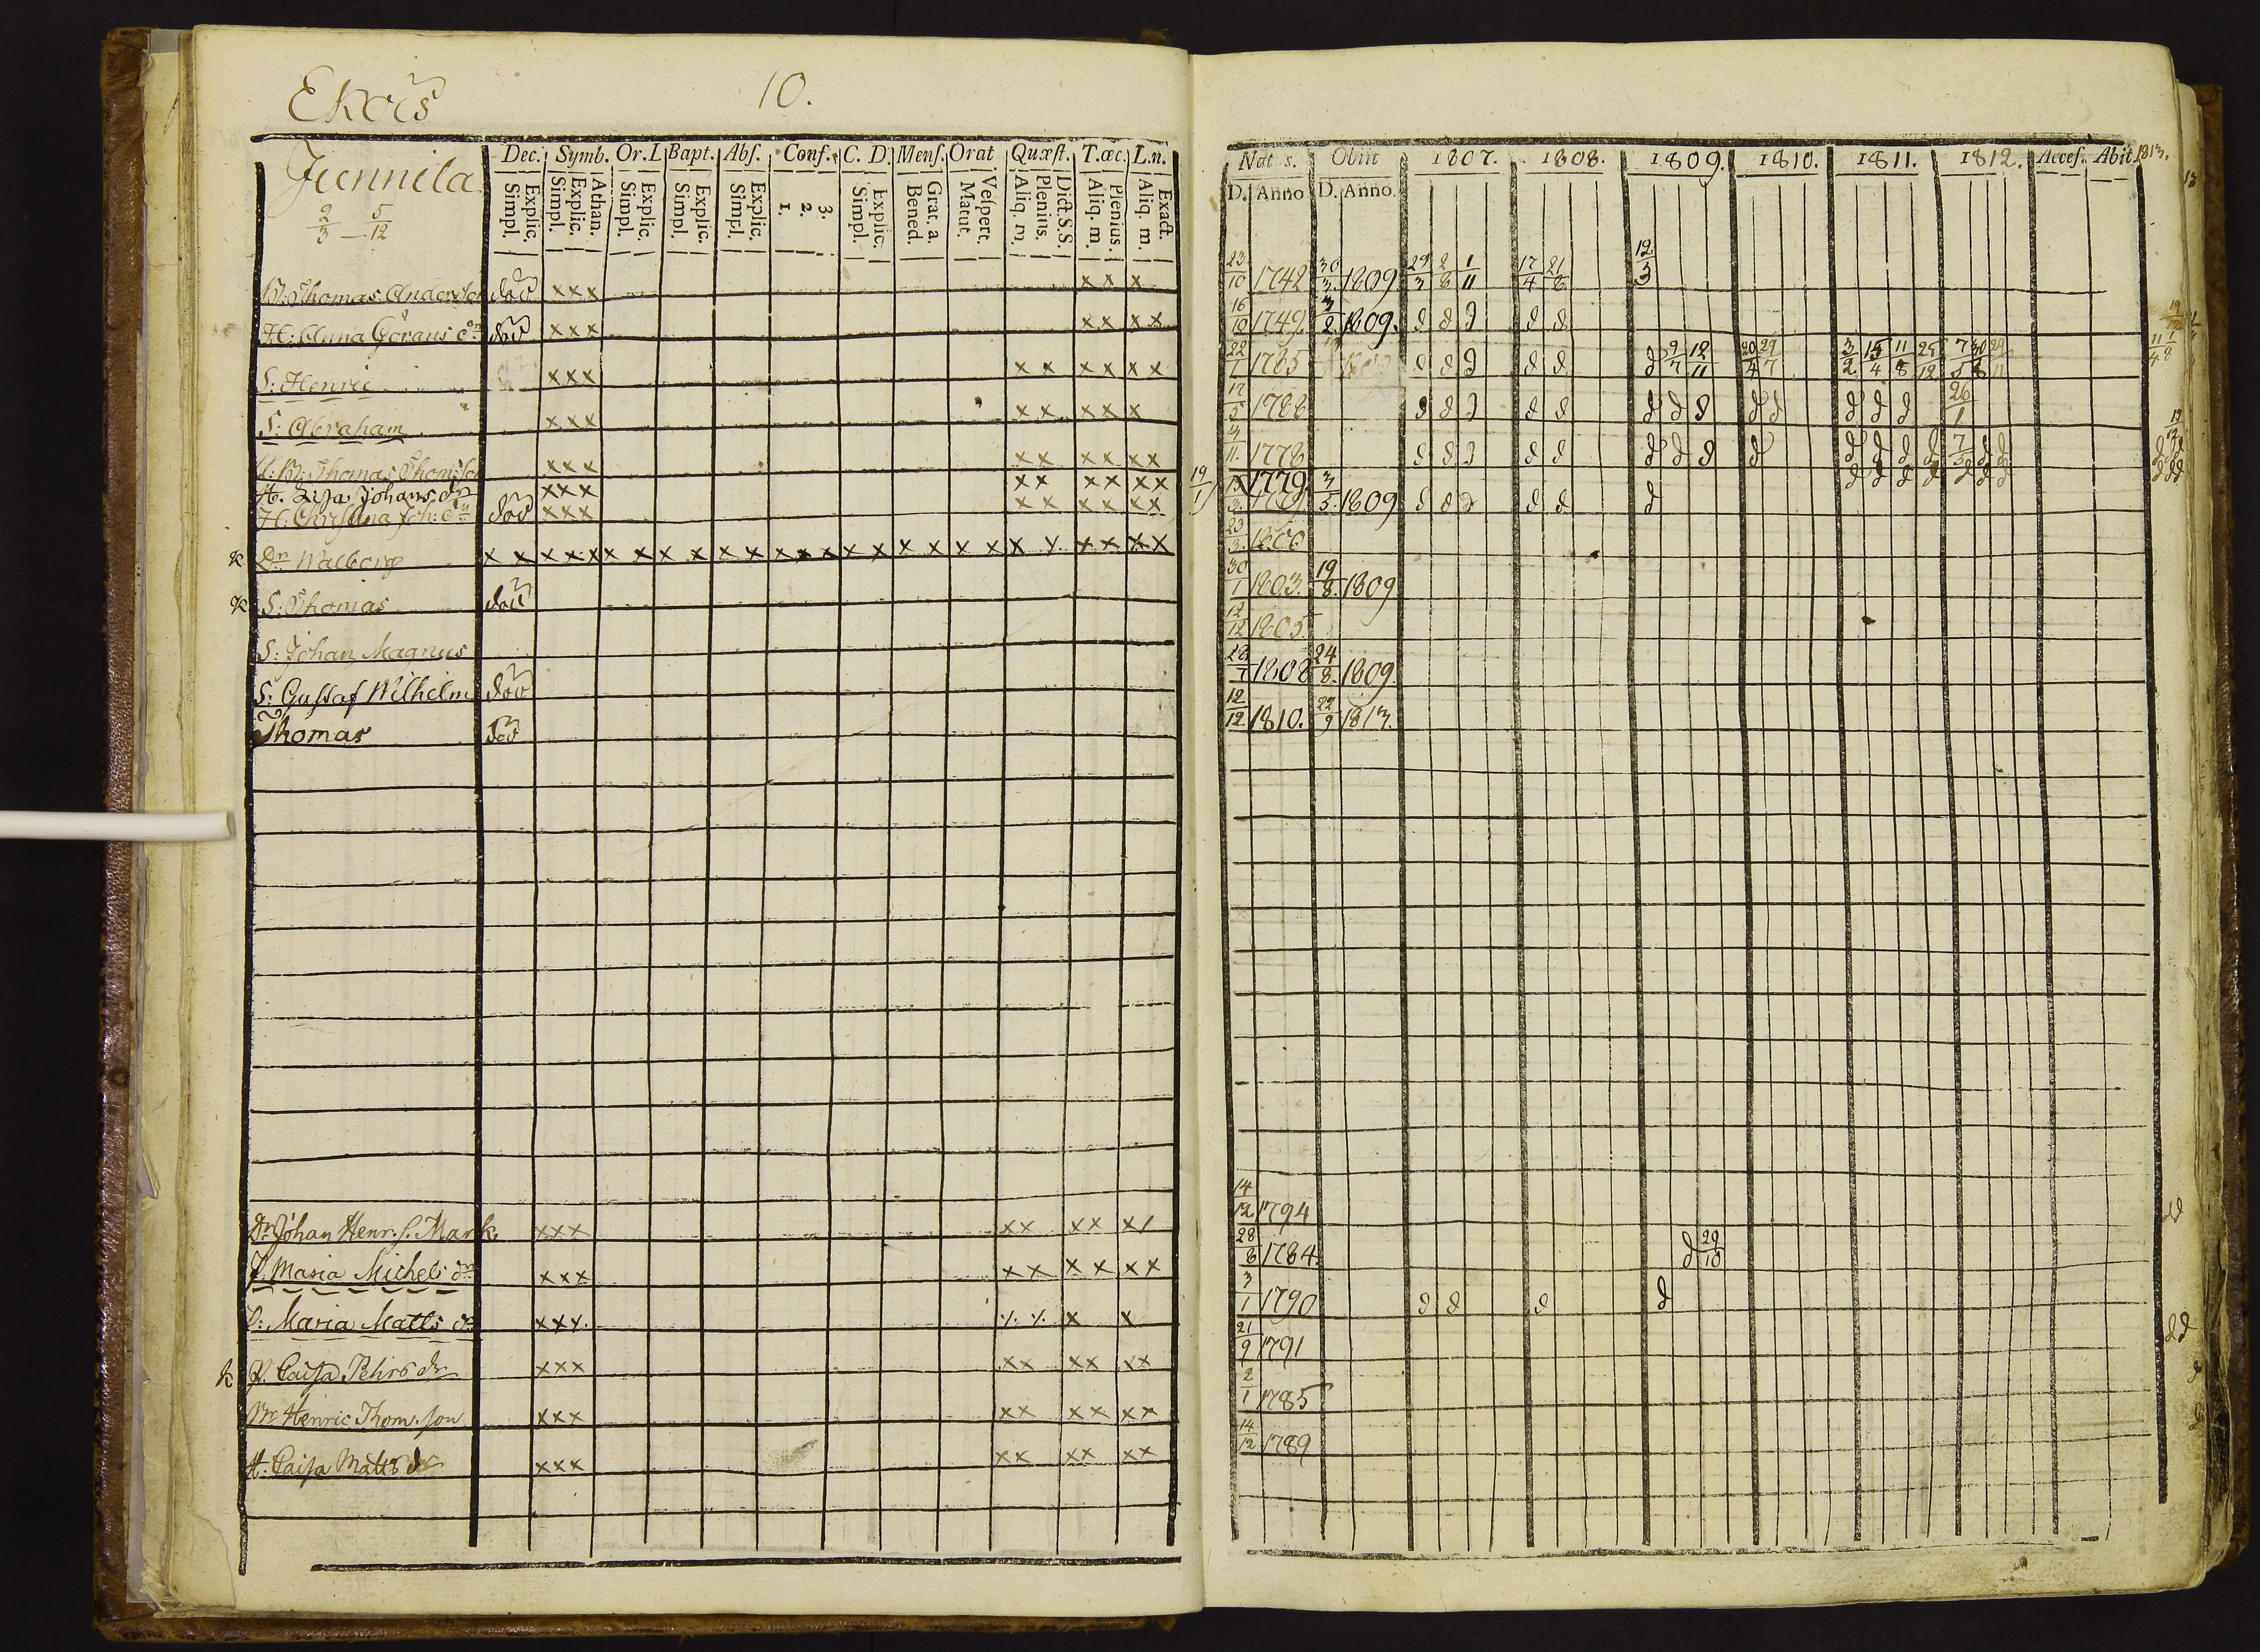 Ekois
10.
Junnila
2/3 — 5/12
Dec. Symb. Or. L Bapt. Abs. Conf. C. D. Mens. Orat Quæst. T. œc. L. n.
Simpl. Explic. Simpl. Explic. Athan. Simpl. Explic. Simpl. Explic. Simpl. Explic. 1. 2. 3. Simpl. Explic. Bened. Grat. a. Matut. Vespert. Aliq. m. Plenius. Dict. S. S. Aliq. m. Plenius. Aliq. m. Exact.
Nat. s. Obiit 1807. 1808. 1809. 1810. 1811. 1812. Acces. Abit 1813.
D. Anno D. Anno.
B: Thomas Anderson död xxx xx x 23/10 1742 30/3 1809 29/3 2/8 1/11 17/4 21/8 12/3
H: Anna Görans dr död xxx xx xx 16/10 1749. 4/2 1809. d d d d d
S: Henric xxx xx xx xx 22/1 1785 d d d d d d 9/7 12/11 20/4 29/7 3/2 15/4 11/8 25/12 7/5 30/8 29/11 11/4 1/8
S: Abraham xxx xx xxx 17/5 1788 d d d d d d d d d d d d d 26/1
B: Thomas Thomson xxx xx xx xx 4/11 1778 d d d d d d d d d d d d d 7/3 d d
H. Lisa Johans dr xxx xx xx xx 19/1 1779 d d d d d d d
H: Christina Joh: dr död xxx xx xx xx 3/5 1809 d d d d d d
k Dr Walborg x x x x x x x x x x x x x x x x x x x x x x x x x x 23/3 1800
k S: Thomas död 30/1 1803. 19/8 1809
S: Johan Magnus 12/12 1805.
S: Gustaf Wilhelm död 28/7 1808 24/8 1809
Thomas död 12/12 1810. 22/9 1813.
Dr Johan Henr. s. Mark. xxx xx xx x/ 14/12 1794
P. Maria Michels dr xxx xx xx xx 28/8 1784. d 29/10
P: Maria Matts dr xxx x x 3/1 1790 d d d d
k P. Caisa Pehrs dr xxx xx xx xx 21/9 1791
Henric Thom. son xxx xx xx xx 2/1 1785
H. Caisa Matts dr xxx xx xx xx 14/12 1789